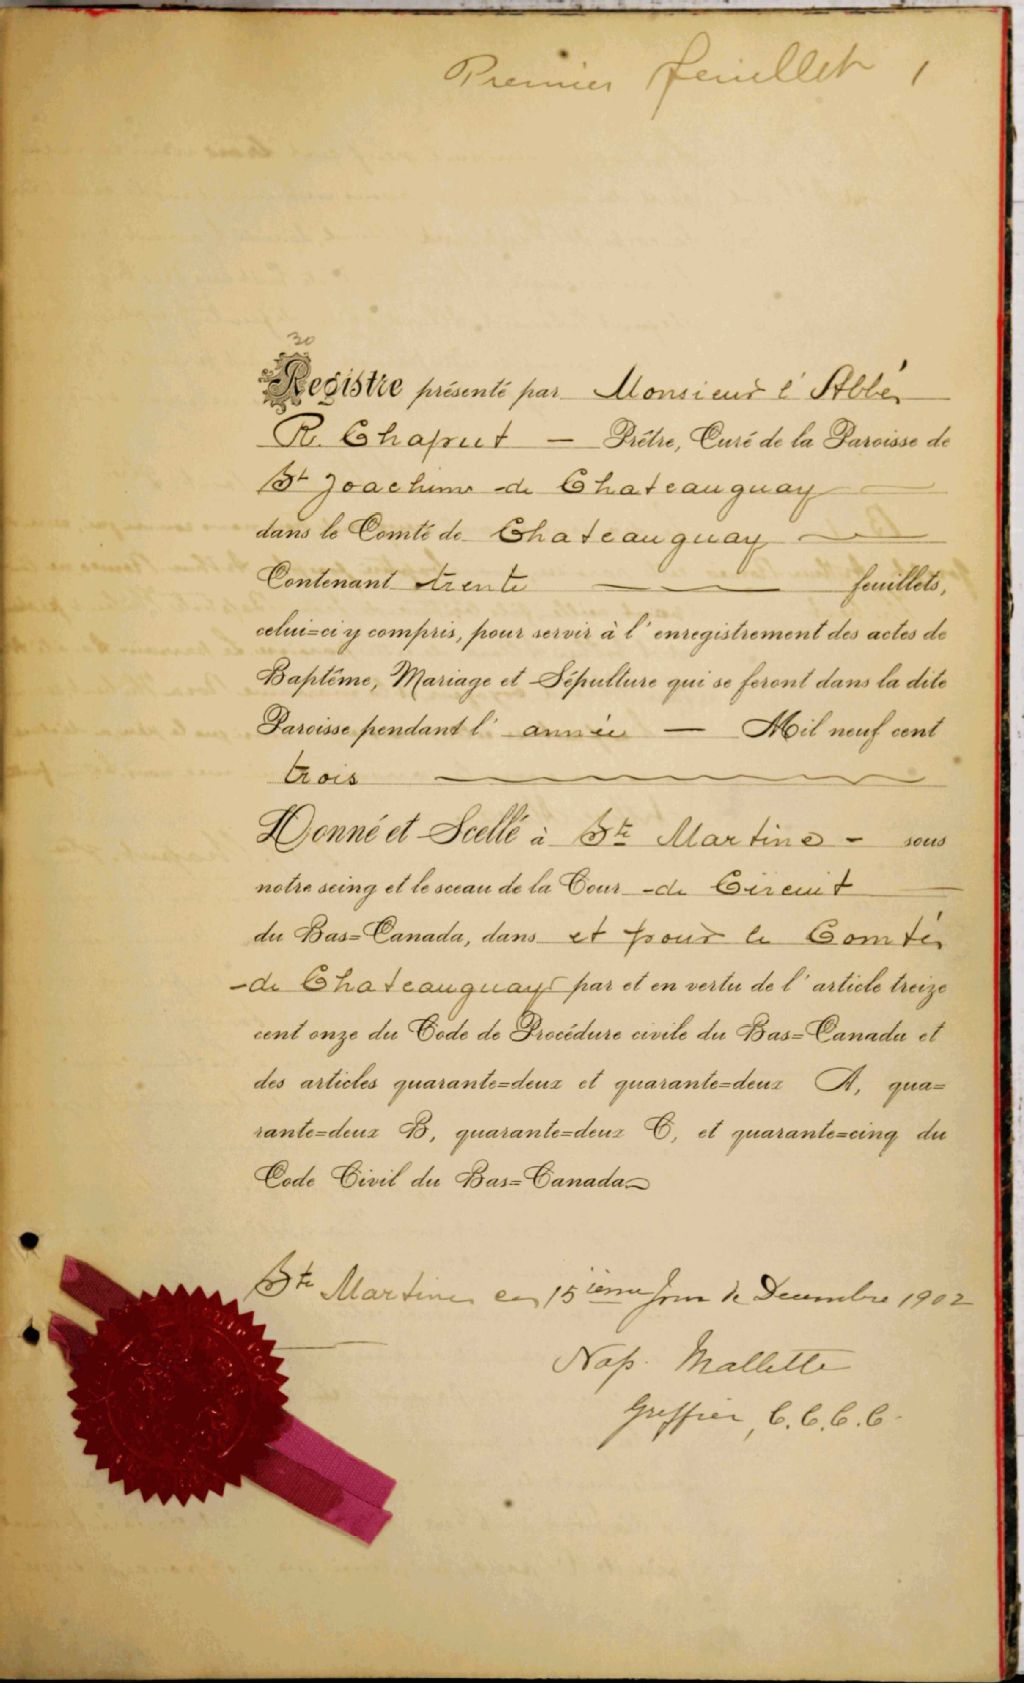 Premier feuillet 1
30
Registre présenté par Monsieur l'Abbé
R. Chaput — Prêtre, Curé de la Paroisse de
St Joachim de Chateauguay
dans le Comté de Chateauguay
Contenant trente feuillets,
celui=ci y compris, pour servir à l'enregistrement des actes de
Baptême, Mariage et Sépulture qui se feront dans la dite
Paroisse pendant l'année — Mil neuf cent
trois
Donné et Scellé à Ste Martine - sous
notre seing et le sceau de la Cour de Circuit
du Bas=Canada, dans et pour le Comté
de Chateauguay par et en vertu de l'article treize
cent onze du Code de Procédure civile du Bas=Canada et
des articles quarante=deux et quarante=deux A, qua=
rante=deux B, quarante=deux C, et quarante=cinq du
Code Civil du Bas=Canada
Ste Martine ce 15ième Jour de Decembre 1902
Nap. Mallette
Greffier, C.C.C.C.